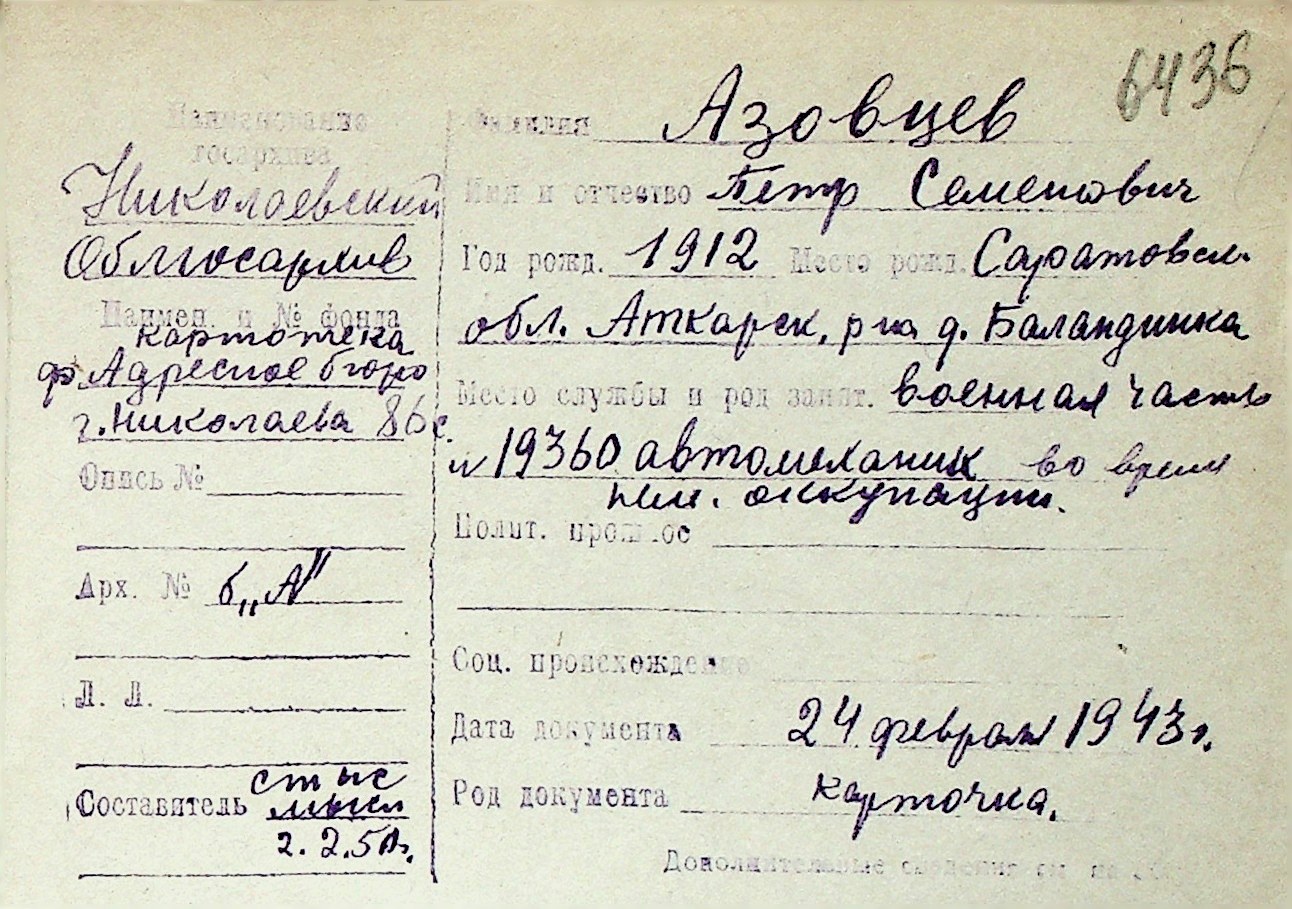 6436
Наименование
госархива
Николаевский
Облгосархив
Наимен. и № фонда
картотека
ф Адресное бюро
г. Николаева 86с.
Опись №
Арх. № б „А"
Л. Л.
Составитель
2.2.50г.
Фамилия Азовцев
Имя и отчество Петр Семенович
Год рожд. 1912 Место рожд. Саратовск.
обл. Аткарск, р на д. Баландинка
Место службы и род занят. военная часть
н 19360 автомеханик во время
нем. оккупации.
Полит. прошлое
Соц. происхождение
Дата документа 24 февраля 1943 г.
Род документа карточка.
Дополнительные сведения см на